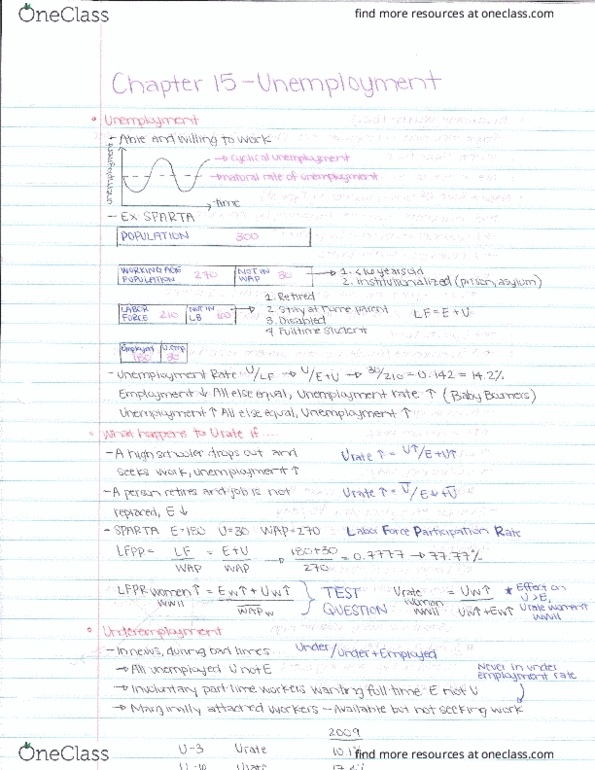 OneClass
find more resources at oneclass.com
Chapter 15 - Unemployment
• Unemployment
- Able and willing to work
unemployment
→ cyclical unemployment
→ natural rate of unemployment
→ time
- Ex SPARTA
POPULATION 300
WORKING AGE POPULATION 270
NOT IN WAP 30
→ 1. <16 years old
2. Institutionalized (prison, asylum)
LABOR FORCE 210
NOT IN LB 60
→ 1. Retired
2. Stay at home parent
3. Disabled
4. Full time student
LF = E + U
Employed 180
U. emp 30
- Unemployment Rate: U/LF → U/E+U → 30/210 = 0.142 = 14.2%
Employment ↓ All else equal, Unemployment rate ↑ (Baby Boomers)
Unemployment ↑ All else equal, Unemployment ↑
• What happens to Urate if...
- A high schooler drops out and
seeks work, unemployment ↑
Urate ↑ = U↑/E+U↑
- A person retires and job is not
replaced, E ↓
Urate ↑ = U̅/E↓+U̅
- SPARTA E=180 U=30 WAP=270 Labor Force Participation Rate
LFPR = LF/WAP = E+U/WAP → 180+30/270 = 0.7777 → 77.77%
LFPR women ↑ WWII = Ew↑ + Uw↑ / W̅A̅P̅w
TEST QUESTION
Urate women WWII = Uw↑ / Uw↑+Ew↑
* Effect on U>E, Urate women ↑ WWII
• Underemployment
- In news, during bad times
Under/Under+Employed
→ All unemployed U not E
→ Involuntary part time workers wanting full time E not U
→ Marginally attached workers - Available but not seeking work
Never in under employment rate
2009
U-3 Urate 10.1%
OneClass
find more resources at oneclass.com